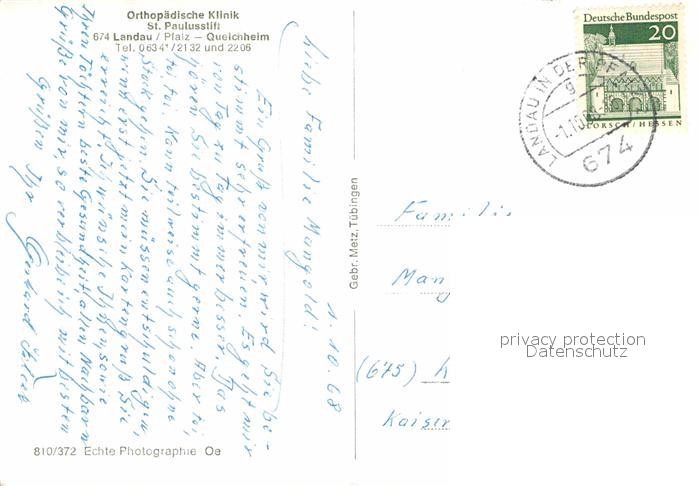 Orthopädische Klinik
St. Paulusstift
674 Landau / Pfalz – Queichheim
Tel. 06341/2132 und 2206
1.10.68
Liebe Familie Mangold!
Ein Gruß von mir wird Sie be-
stimmt sehr erfreuen. Es geht mir
von Tag zu Tag immer besser. Das
hören Sie bestimmt gerne. Aber toi,
toi toi. Kann teilweise auch schon ohne
Stock gehen. Sie müssen entschuldigen,
wenn erst jetzt mein Kartengruß Sie
erreicht. Ich wünsche Ihnen, sowie
Ihren Töchtern beste Gesundheit, allen Nachbarn
Grüße von mir, so verbleibe ich mit besten
Grüßen Ihr Gerhard
Gebr. Metz, Tübingen
810/372 Echte Photographie Oe
Deutsche Bundespost
20
LORSCH/HESSEN
LANDAU IN DER PFALZ
-1.10.68
674
Familie
Man
(675) K
Kaiser
privacy protection
Datenschutz